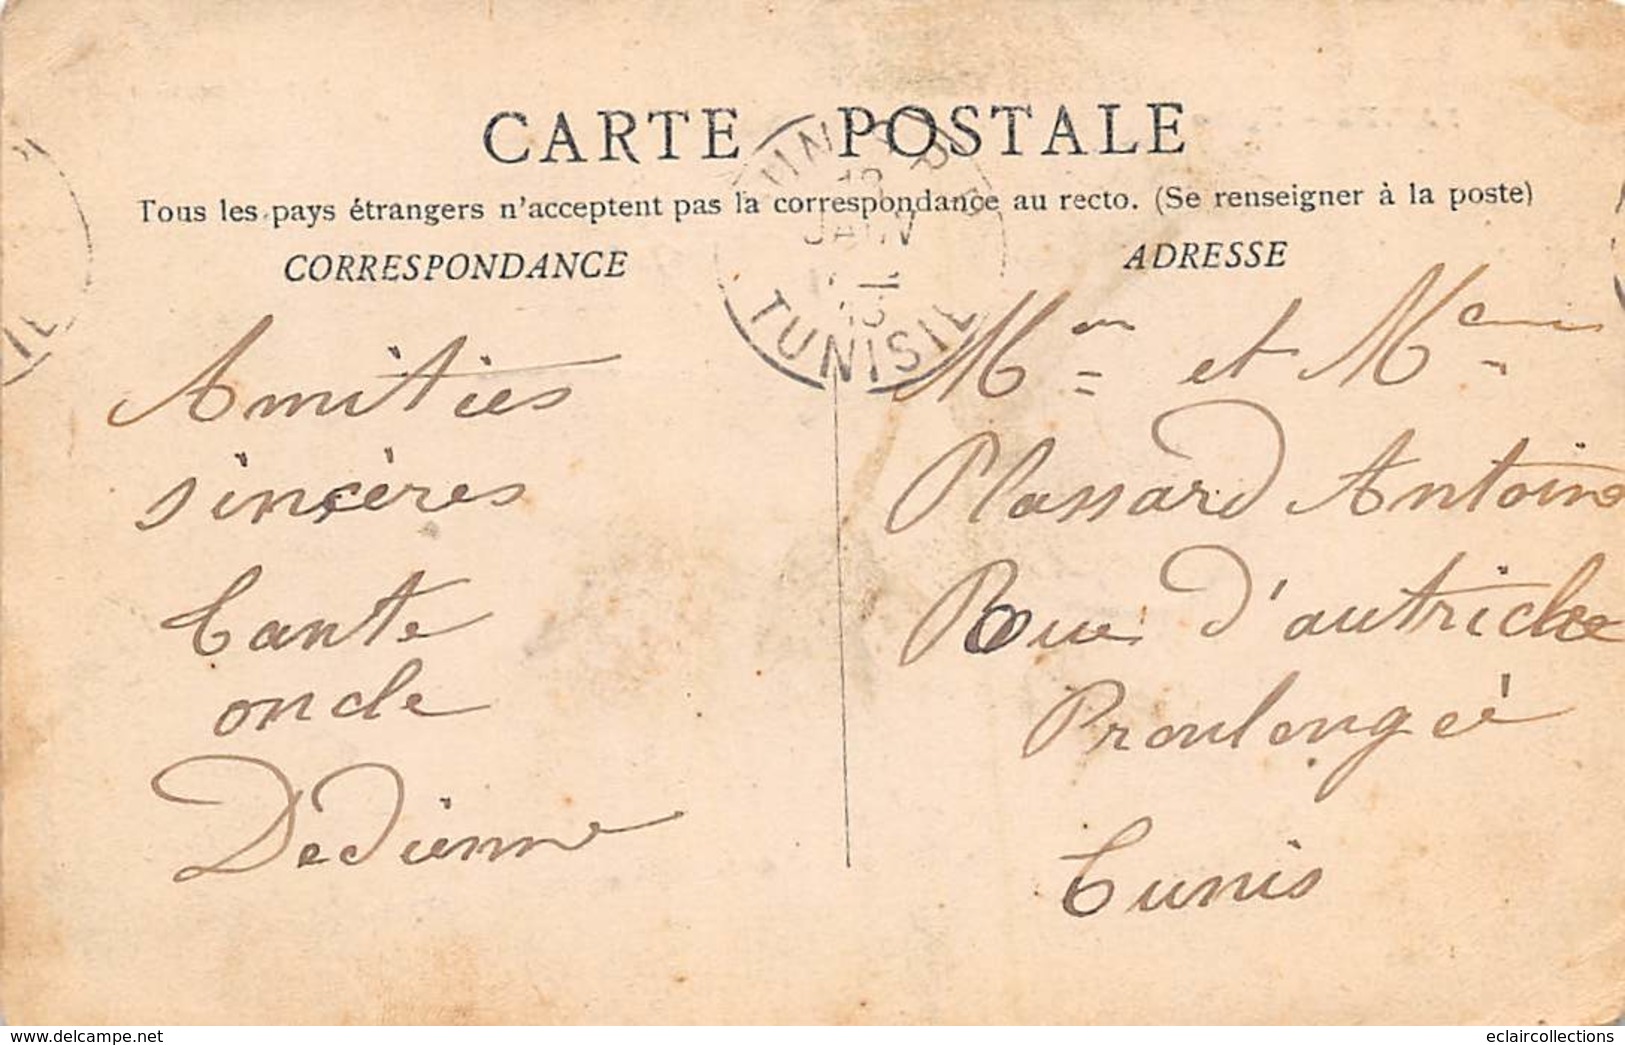 CARTE POSTALE
Tous les pays étrangers n'acceptent pas la correspondance au recto. (Se renseigner à la poste)
CORRESPONDANCE
ADRESSE
JANV
TUNISIE
Amitiés
sincères
Tante
oncle
Dedienne
Mon et Me
Plassard Antoine
Rue d'autriche
Proulongeé
Tunis
delcampe.net
eclaircollections